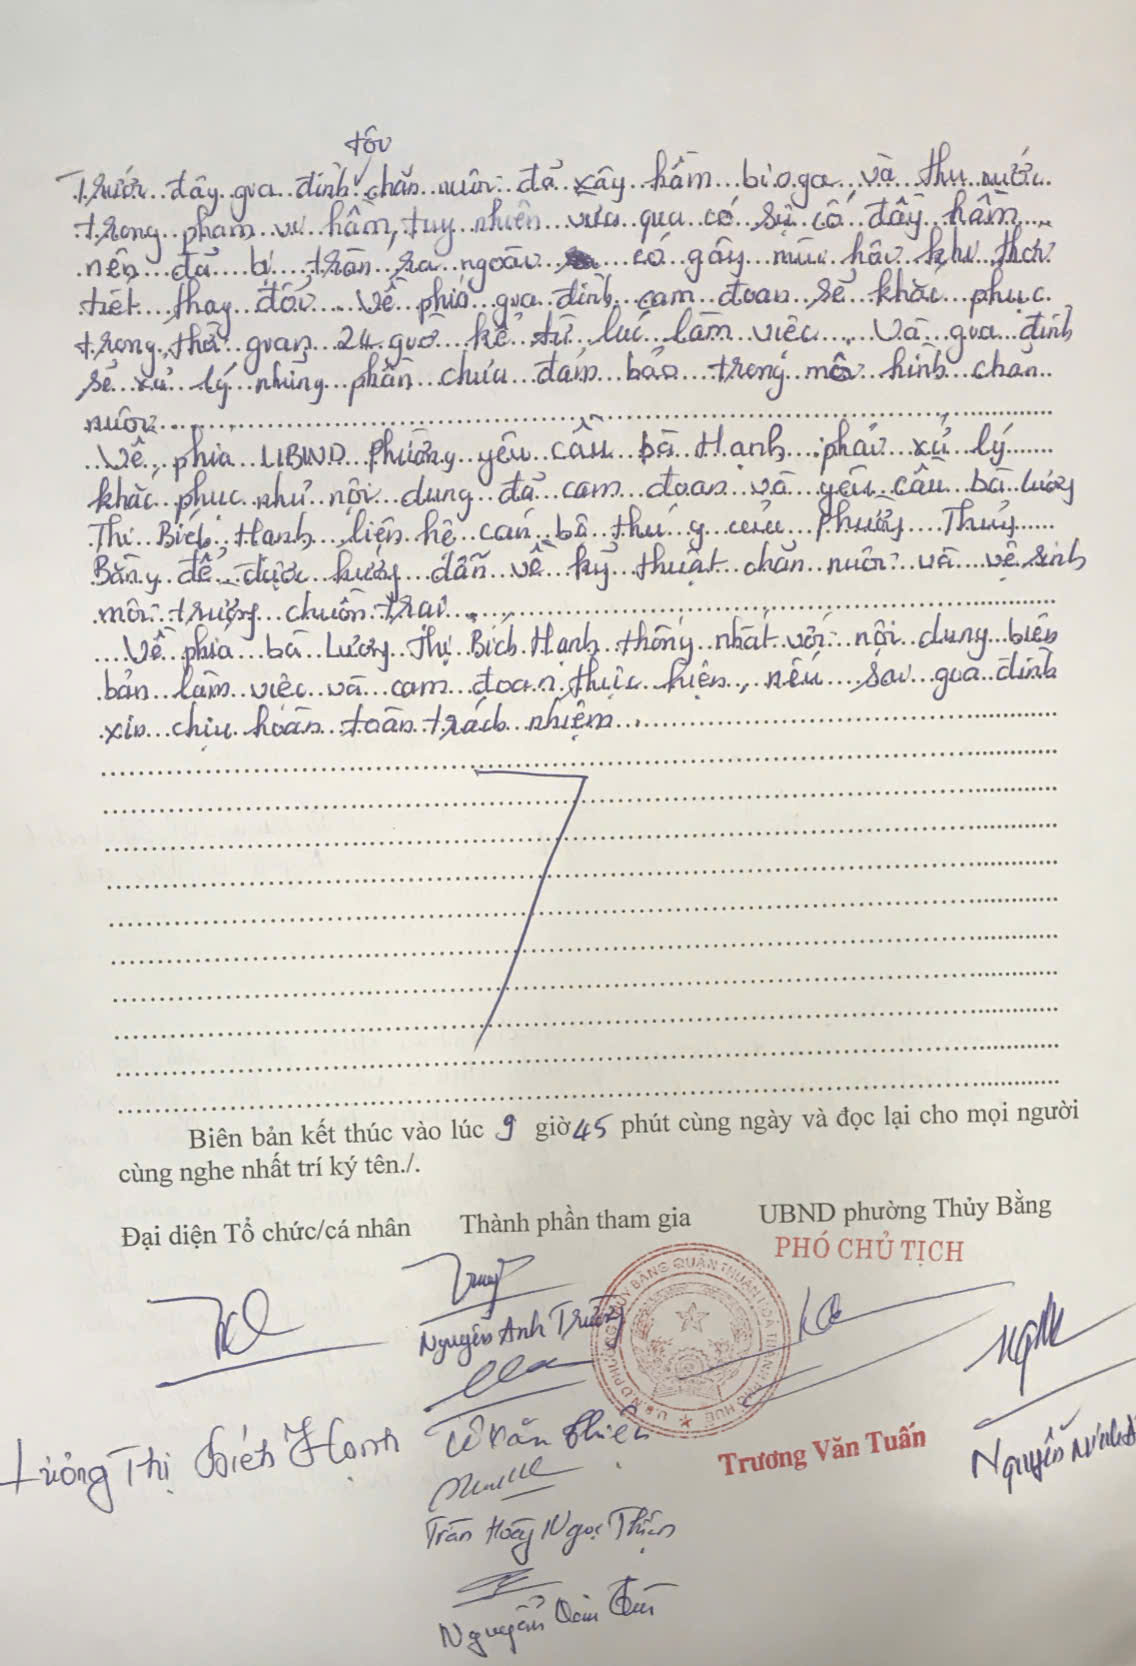 tôi
Trước đây gia đình chăn nuôi đã xây hầm bioga và thu nước
trong phạm vi hầm, tuy nhiên vừa qua có sự cố đầy hầm
nên đã bị tràn ra ngoài có gây mùi hôi khi thời
tiết thay đổi. Về phía gia đình cam đoan sẽ khắc phục
trong thời gian 24 giờ kể từ lúc làm việc. Và gia đình
sẽ xử lý những phần chưa đảm bảo trong mô hình chăn
nuôi.
Về phía UBND Phường yêu cầu bà Hạnh phải xử lý
khắc phục như nội dung đã cam đoan và yêu cầu bà Lương
Thị Bích Hạnh liên hệ cán bộ thú y của Phường Thủy
Bằng để được hướng dẫn về kỹ thuật chăn nuôi và vệ sinh
môi trường chuồng trại.
Về phía bà Lương Thị Bích Hạnh thống nhất với nội dung biên
bản làm việc và cam đoan thực hiện, nếu sai gia đình
xin chịu hoàn toàn trách nhiệm.
Biên bản kết thúc vào lúc 9 giờ 45 phút cùng ngày và đọc lại cho mọi người
cùng nghe nhất trí ký tên./.
Đại diện Tổ chức/cá nhân Thành phần tham gia UBND phường Thủy Bằng
PHÓ CHỦ TỊCH
U.B.N.D PHƯỜNG THỦY BẰNG QUẬN THUẬN HOÁ THÀNH PHỐ HUẾ
Nguyễn Anh Trường
Lương Thị Bích Hạnh
Văn
Trương Văn Tuấn
Nguyễn
Trần Hoàng Ngọc
Nguyễn